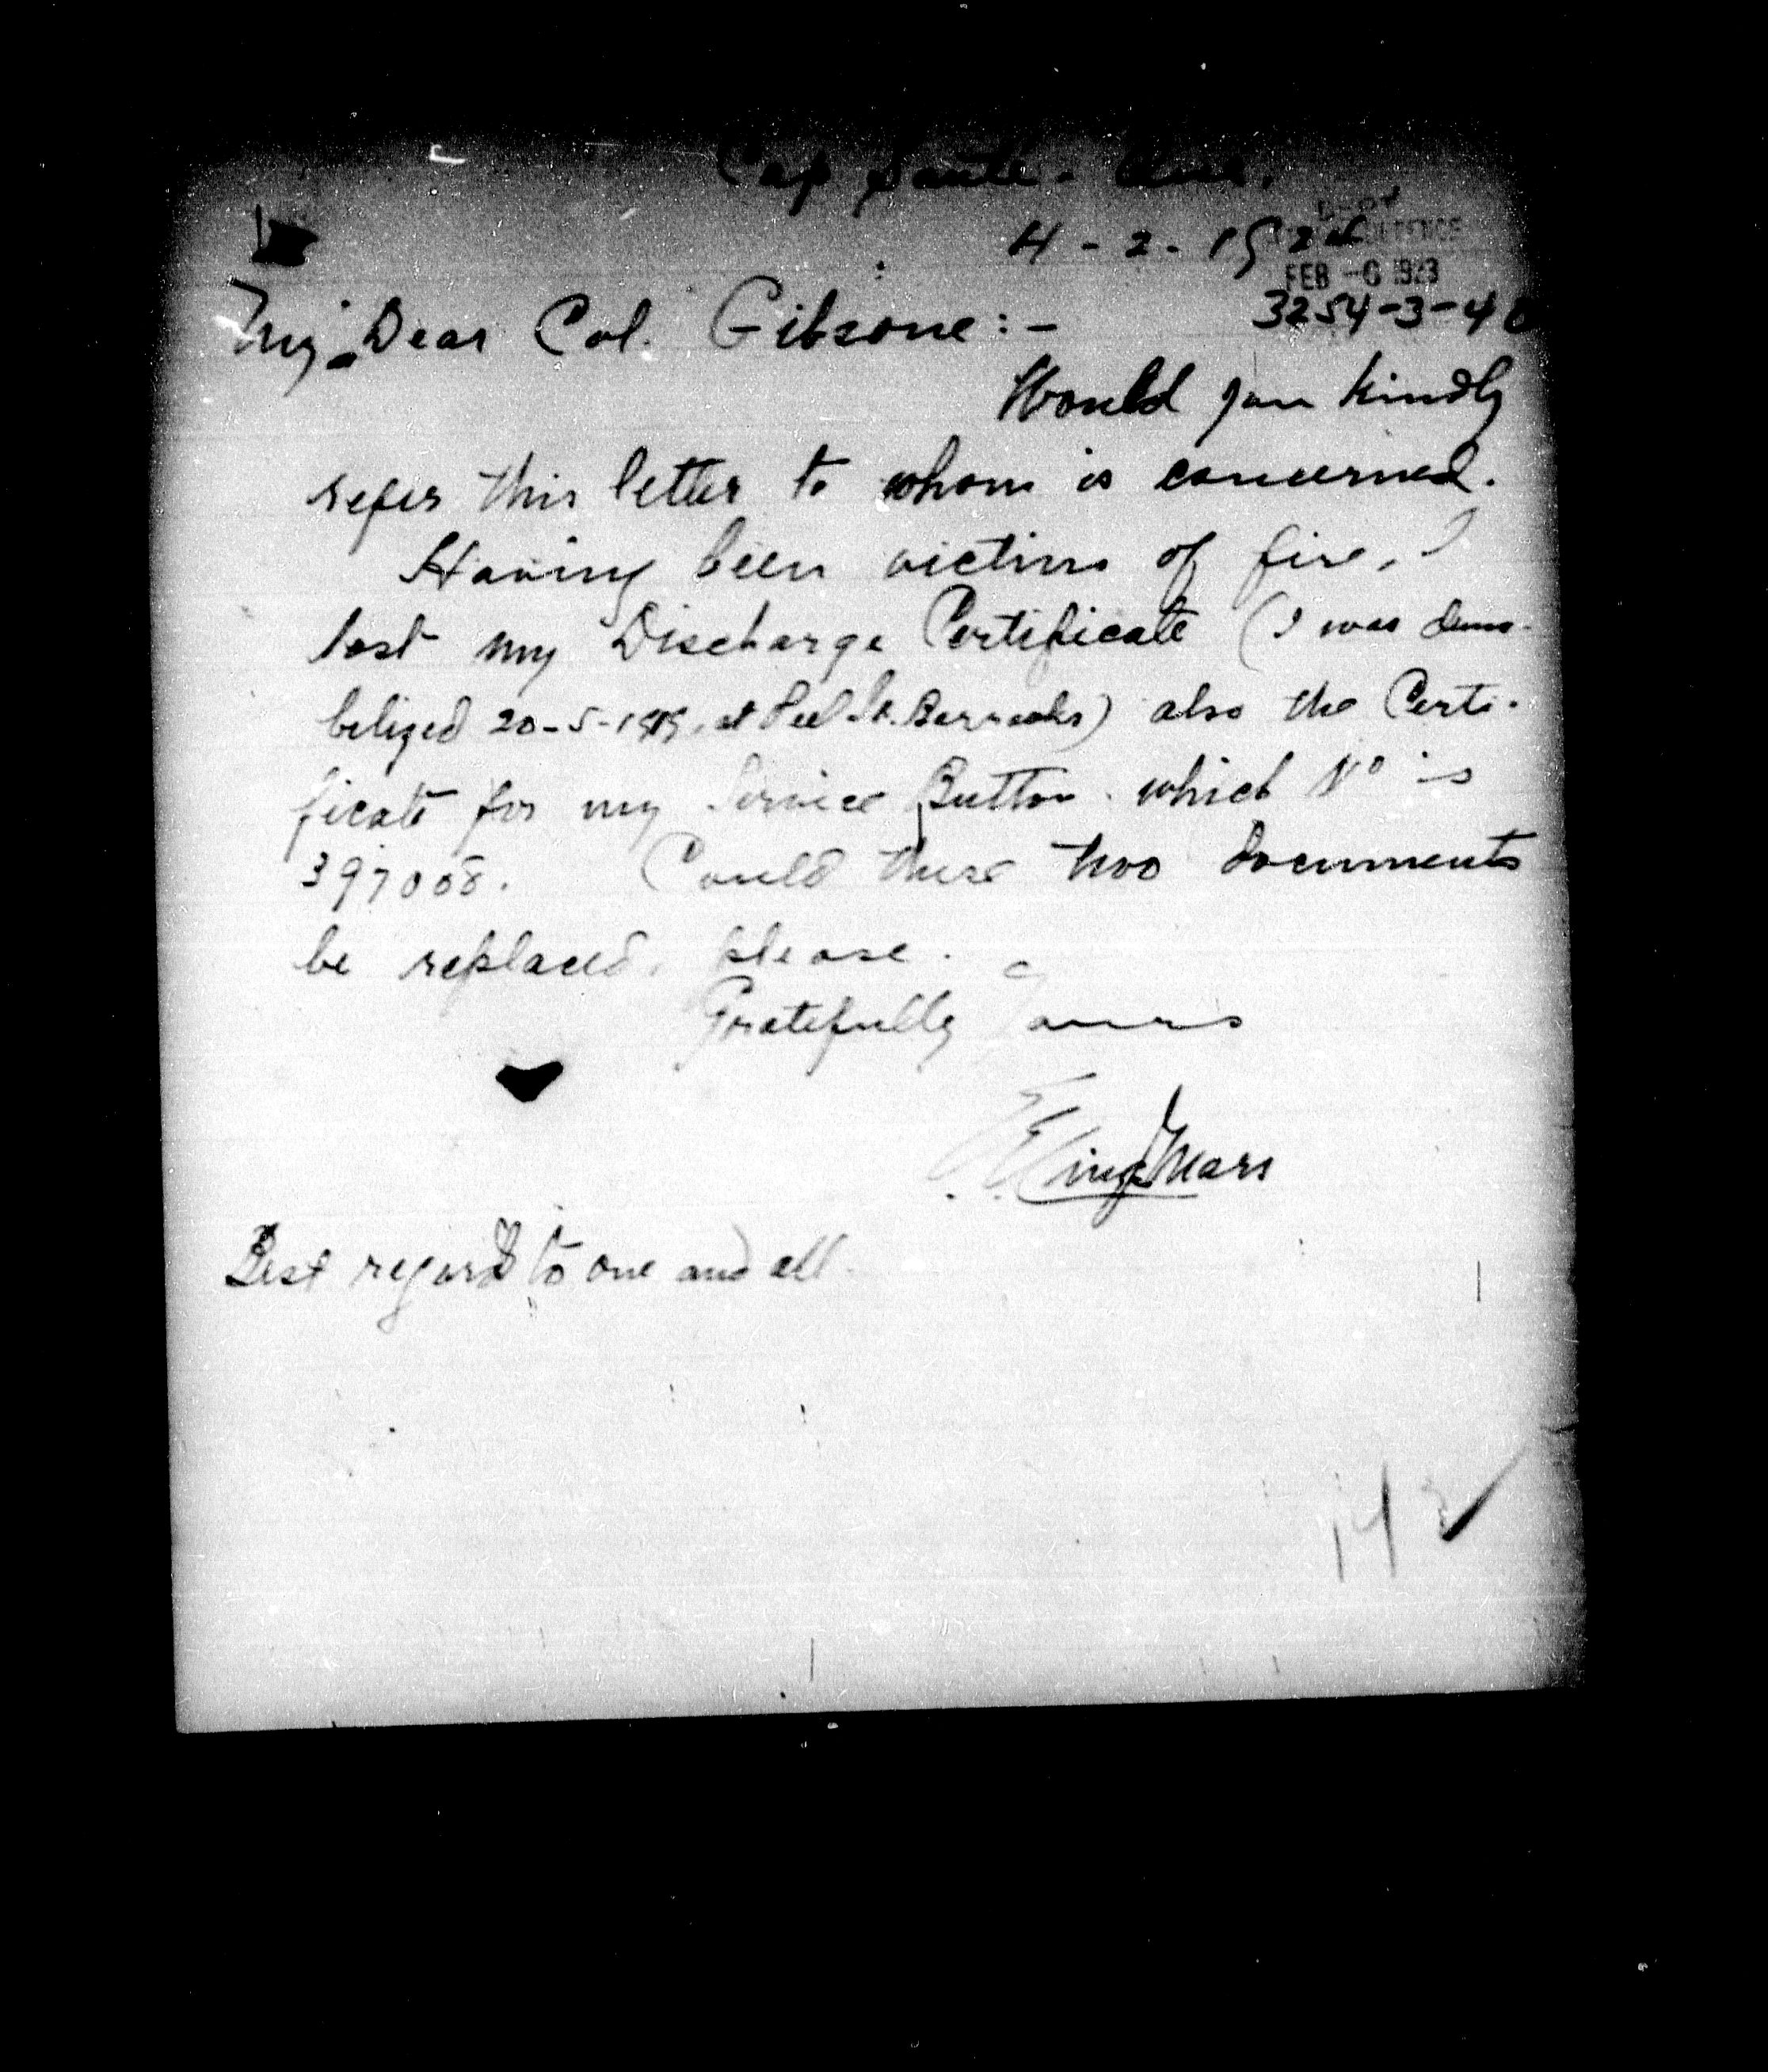 Cap Santé. Que.
4-2-192
DEFENCE
FEB -6 1923
3254-3-48
My Dear Col. Gibsone:-
Would you kindly
refer this letter to whom is concerned.
Having been victim of fire, I
lost my Discharge Certificate (I was demo-
bilized 20-5-1919, at Peel St. Barracks) also the Certi-
ficate for my Service Button. which No is
397008. Could these two documents
be replaced, please.
Gratefully Yours
Best regards to one and all.